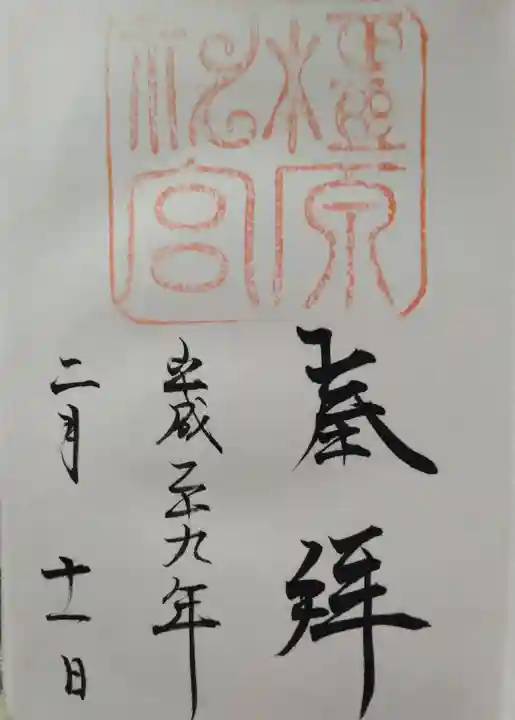 橿原
神宮
奉拝
平成二十九年
二月十一日